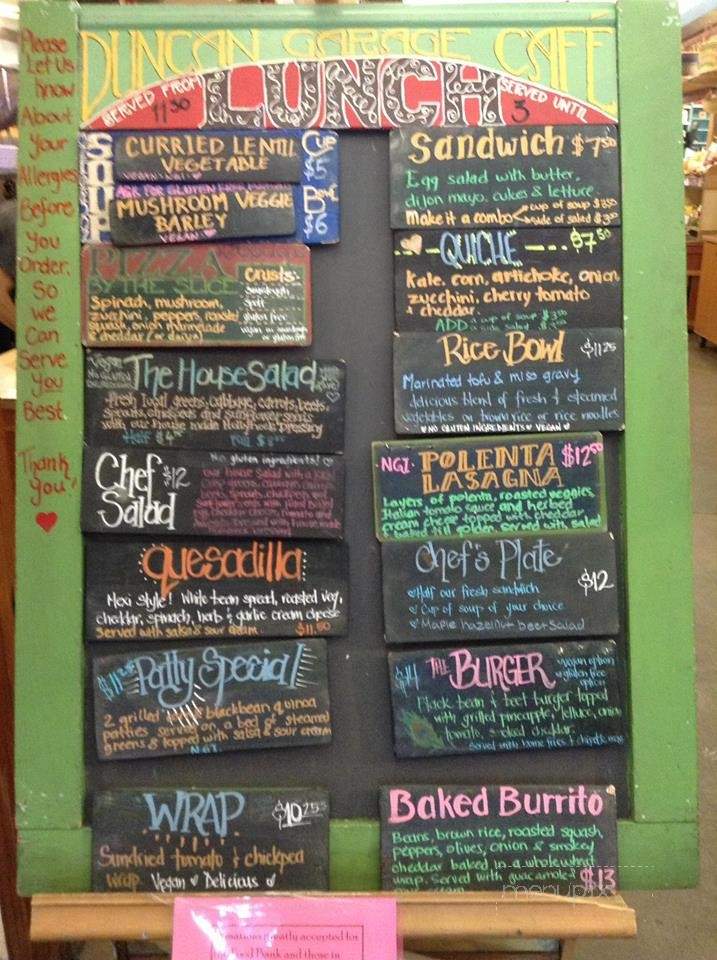 Please
Let Us
know
About
Your
Allergies
Before
You
Order,
So
we
Can
Serve
You
Best.
Thank
you!
DUNCAN GARAGE CAFÉ
SERVED FROM
11:30
LUNCH
SERVED UNTIL
3
SOUP
CURRIED LENTIL
VEGETABLE
Cup
$5
ASK FOR GLUTEN FREE
MUSHROOM VEGGIE
BARLEY
VEGAN
Bowl
$6
PIZZA
BY THE SLICE
Spinach, mushroom,
zucchini, peppers, roast
squash, onion marinade
& cheddar (or daiya)
Crusts:
gluten free
The House Salad
fresh local greens, cabbage, carrots, beets,
sprouts, chickpeas and sunflower seeds
with our house made Hollyhock Dressing
Half
Full
Chef
Salad
$12
No gluten ingredients!
our house salad with
Quesadilla
Mexi style! White bean spread, roasted veg,
cheddar, spinach, herb & garlic cream cheese
Served with salsa & sour cream.
$11.50
Patty Special
2 grilled blackbean quinoa
patties served on a bed of steamed
greens & topped with salsa & sour cream
NGI
WRAP
$10.25
Sundried tomato & chickpea
wrap. Vegan Delicious
Sandwich $7.50
Egg salad with butter,
dijon mayo, cukes & lettuce.
Make it a combo
cup of soup $3.50
side of salad $3.50
QUICHE $7.50
Kale, corn, artichoke, onion
zucchini, cherry tomato
& cheddar
ADD
Rice Bowl $11.25
Marinated tofu & miso gravy
delicious blend of fresh & steamed
vegetables on brown rice or rice noodles
NO GLUTEN INGREDIENTS VEGAN
NGI POLENTA $12.00
LASAGNA
Layers of polenta, roasted veggies,
Italian tomato sauce and herbed
cream cheese topped with cheddar
& baked till golden. Served with salad
Chef's Plate
$12
Half our fresh sandwich
Cup of soup of your choice
Maple hazelnut beet salad
$14 THE BURGER
vegan option
gluten free
option
Black bean & beet burger topped
with grilled pineapple, lettuce, onion
tomato, smoked cheddar.
Served with home fries & chipotle mayo
Baked Burrito
Beans, brown rice, roasted squash,
peppers, olives, onion & smokey
cheddar baked in a whole wheat
wrap. Served with guacamole &
$13
menupix
Donations greatly accepted for
the Food Bank and those in